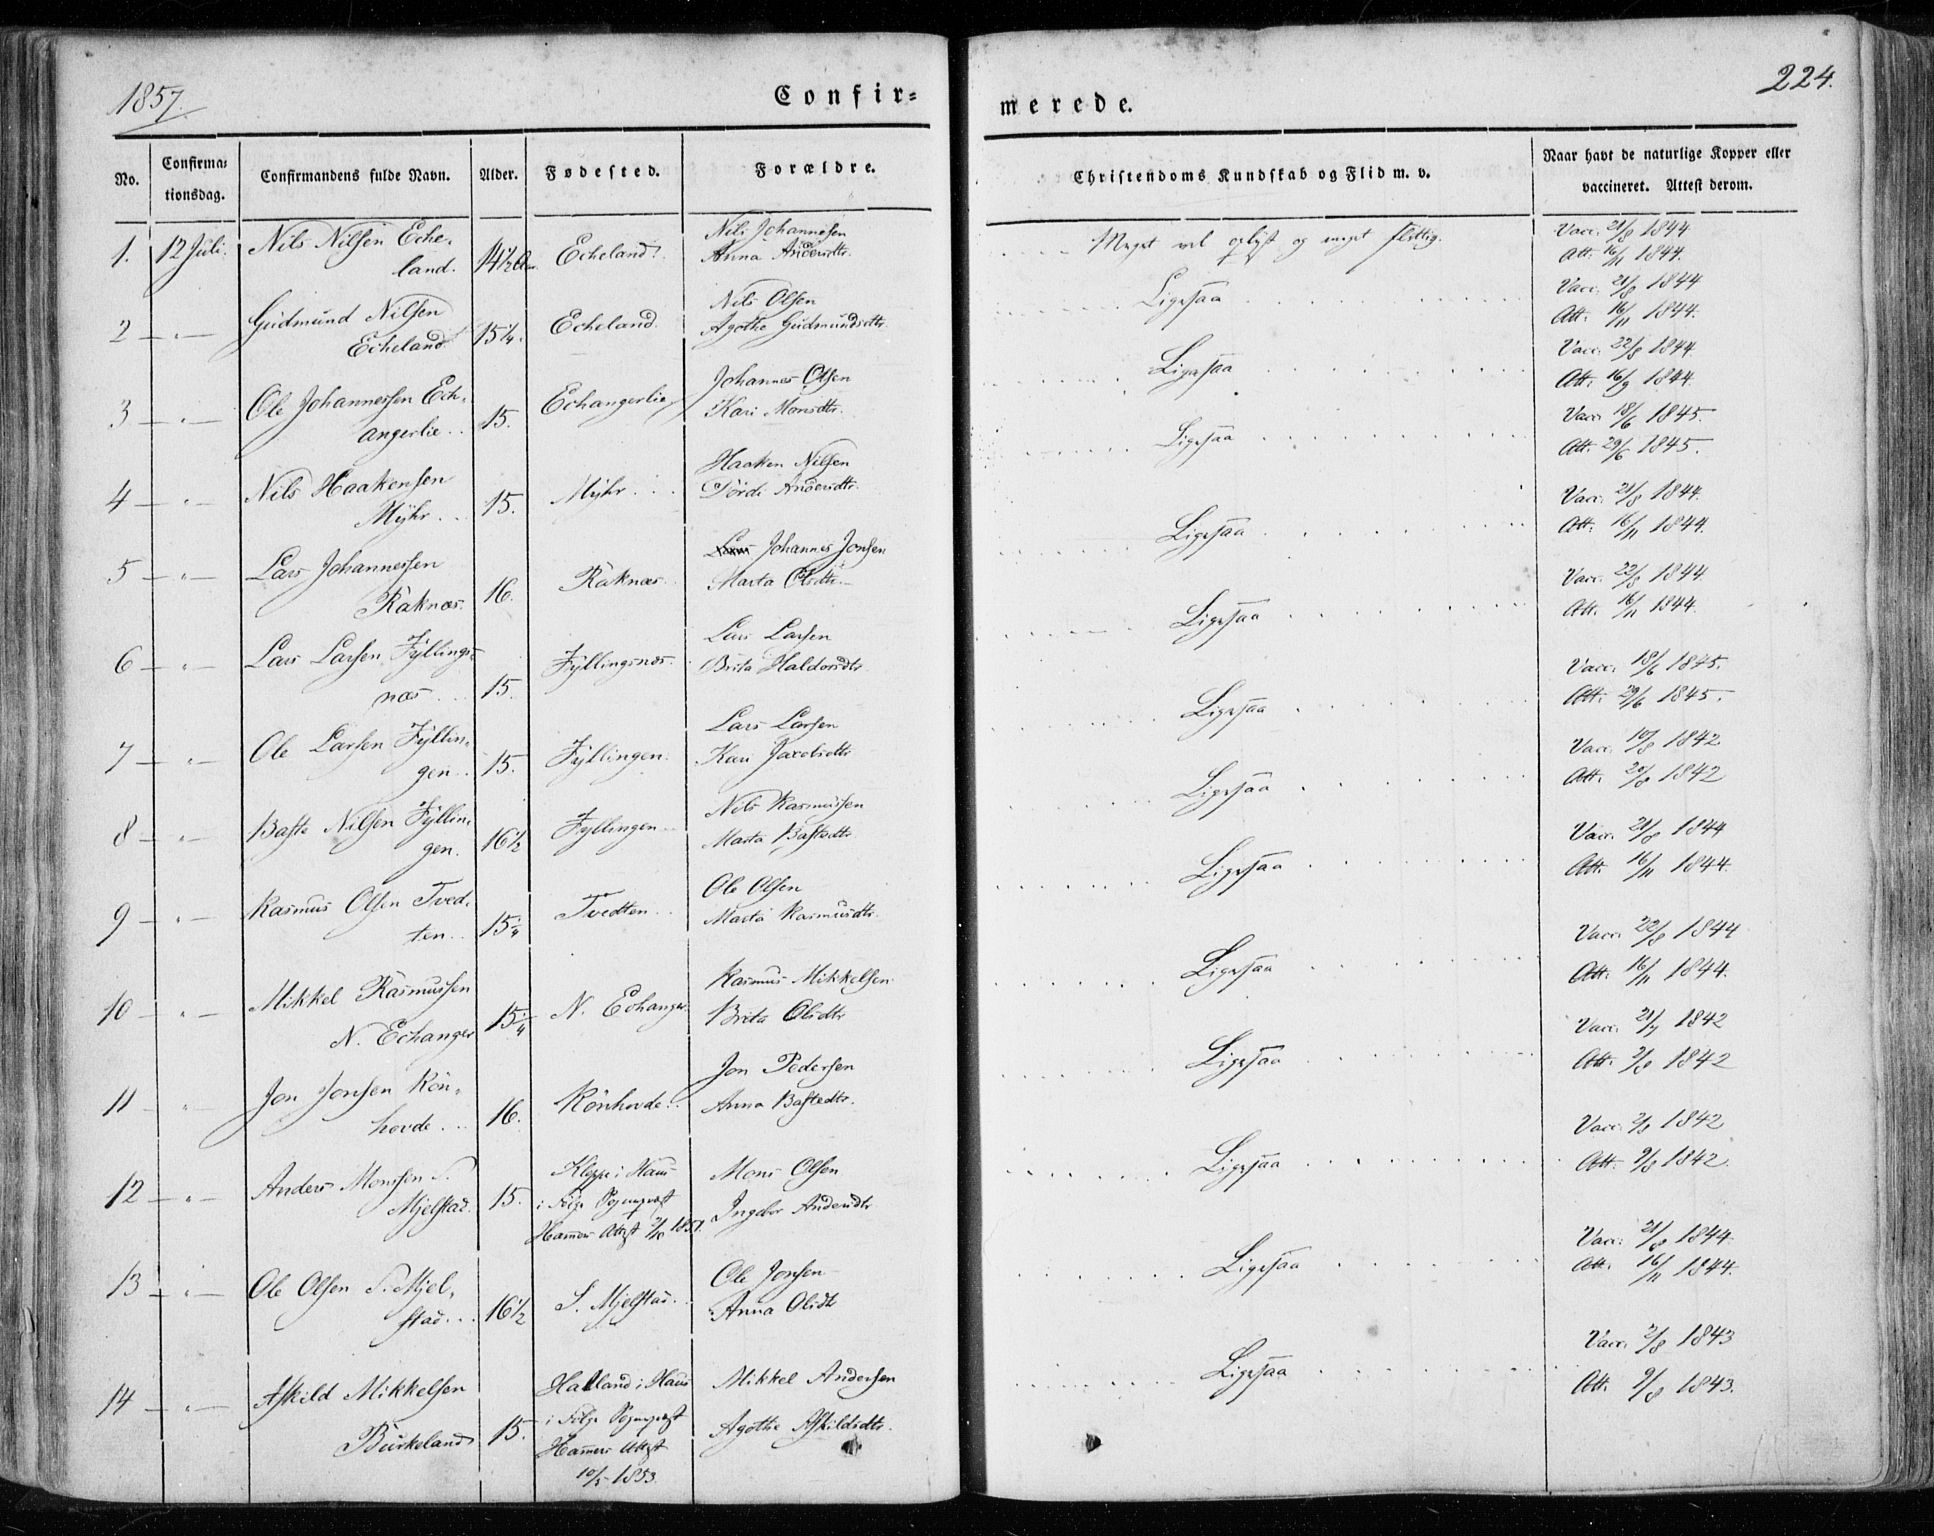 1857.
Confir=
merede.
224.
No.
Confirma=
tionsdag.
Confirmandens fulde Navn.
Alder.
Fødested.
Forældre.
Christendoms Kundskab og Flid m. v.
Naar havt de naturlige Kopper eller
vaccineret. Attest derom.
1. 12 Juli. Nils Nilsen Eche-
land. 14½ Echeland. Nils Johannesen
Anna Andersdtr.
Meget vel oplyst og meget flittig.
Vacc. 21/8 1844
Att. 16/11 1844.
2 — " — Gudmund Nilsen
Echeland 15¼. Echeland. Nils Olsen
Agothe Gudmundsdtr.
Ligesaa
Vacc. 21/8 1844
Att. 16/11 1844.
3 — " — Ole Johannessen Ech-
angerlie. 15. Echangerlie Johannes Olsen
Kari Monsdtr.
Ligesaa
Vacc. 22/8 1844.
Att. 16/9 1844.
4 — " — Nils Haakensen
Myhr. 15. Myhr. Haaken Nilsen
Andersdtr.
Ligesaa
Vacc. 18/6 1845.
Att. 29/6 1845.
5 — " — Lars Johannessen
Raknæs. 16. Raknæs. Johannes Jonsen
Marta Olsdtr.
Ligesaa
Vacc. 21/8 1844.
Att. 16/11 1844.
6 — " — Lars Larsen Fyllings-
næs. 15. Fyllingsnæs. Lars Larsen
Brita Haldorsdtr.
Ligesaa
Vacc. 22/8 1844.
Att. 16/11 1844.
7 — " — Ole Larsen Fyllin-
gen. 15. Fyllingen. Lars Larsen
Kari Jacobsdtr
Ligesaa
Vacc. 18/6 1845.
Att. 29/6 1845.
8 — " — Baste Nilsen Fyllin-
gen. 16½ Fyllingen Nils Rasmussen
Marta Bastedtr
Ligesaa
Vacc. 10/8 1842
Att. 20/8 1842
9 — " — Rasmus Olsen Tved-
ten. 15¼ Tvedten. Ole Olsen
Marta Rasmusdtr.
Ligesaa
Vacc. 21/8 1844
Att. 16/11 1844.
10 — " — Mikkel Rasmussen
N. Echanger 15¼ N. Echanger Rasmus Mikkelsen
Brita Olsdtr
Ligesaa
Vacc. 22/8 1844
Att. 16/11 1844.
11 — " — Jon Jonsen Rön-
hovde. 16. Rönhovde. Jon Pedersen
Anna Bastedtr.
Ligesaa
Vacc. 21/7 1842
Att. 2/8 1842
12 — " — Anders Monssen S.
Mjelstad. 15. Kleppe i Haus
i Følge Sognepræst
Hamers Attest 1851. Mons Olsen
Ingebor Andersdtr
Ligesaa
Vacc. 2/8 1842
Att. 9/8 1842.
13 — " — Ole Olsen S. Mjel-
stad. 16½ S. Mjelstad. Ole Jonsen
Anna Olsdtr
Ligesaa
Vacc. 21/8 1844.
Att. 16/11 1844.
14 — " — Askild Mikkelsen
Burkeland 15. Halland i Haus
i Følge Sognepræst
Hamers Attest
10/5 1853. Mikkel Andersen
Agothe Askildsdtr.
Ligesaa
Vacc. 2/8 1843
Att. 9/8 1843.